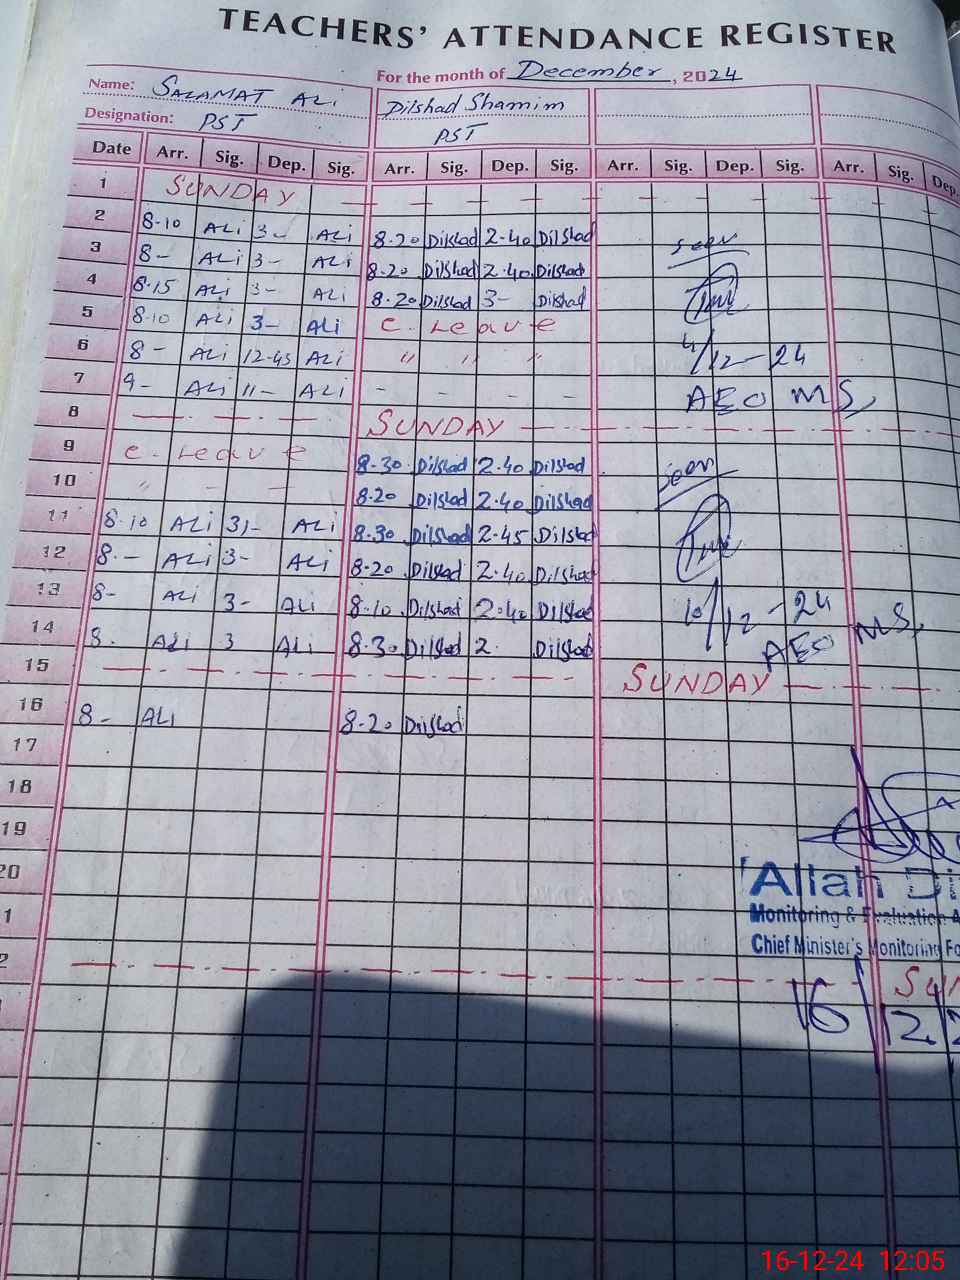 TEACHERS' ATTENDANCE REGISTER
For the month of December, 2024
Name: SALAMAT ALi Dilshad Shamim
Designation: PST PST
Date Arr. Sig. Dep. Sig. Arr. Sig. Dep. Sig. Arr. Sig. Dep. Sig. Arr. Sig. Dep.
1 SUNDAY
2 8-10 ALi 3- ALi 8-20 Dilshad 2.40 Dilshad seen
3 8- ALi 3- ALi 8-20 Dilshad 2.40 Dilshad
4 8-15 ALi 3- ALi 8-20 Dilshad 3- Dilshad
5 8-10 ALi 3- ALi C. Leave 4/12-24
6 8- ALi 12-45 ALi " " "
7 9- ALi 11- ALi - - - - AEO MS,
8 SUNDAY
9 C. Leave 8-30 Dilshad 2.40 Dilshad seen
10 " - - - 8-20 Dilshad 2.40 Dilshad
11 8-10 ALi 3/- ALi 8.30 Dilshad 2.45 Dilshad
12 8.- ALi 3- ALi 8-20 Dilshad 2.40 Dilshad
13 8- ALi 3- ALi 8-10 Dilshad 2.40 Dilshad 10/12-24
14 8. ALi 3 ALi 8.30 Dilshad 2. Dilshad AEO MS,
15 SUNDAY
16 8- ALi 8-20 Dilshad
17
18
19
20
1 Allah Di
Monitoring & Evaluation A
Chief Minister's Monitoring Fo
2 SUN
16/12/2
16-12-24 12:05